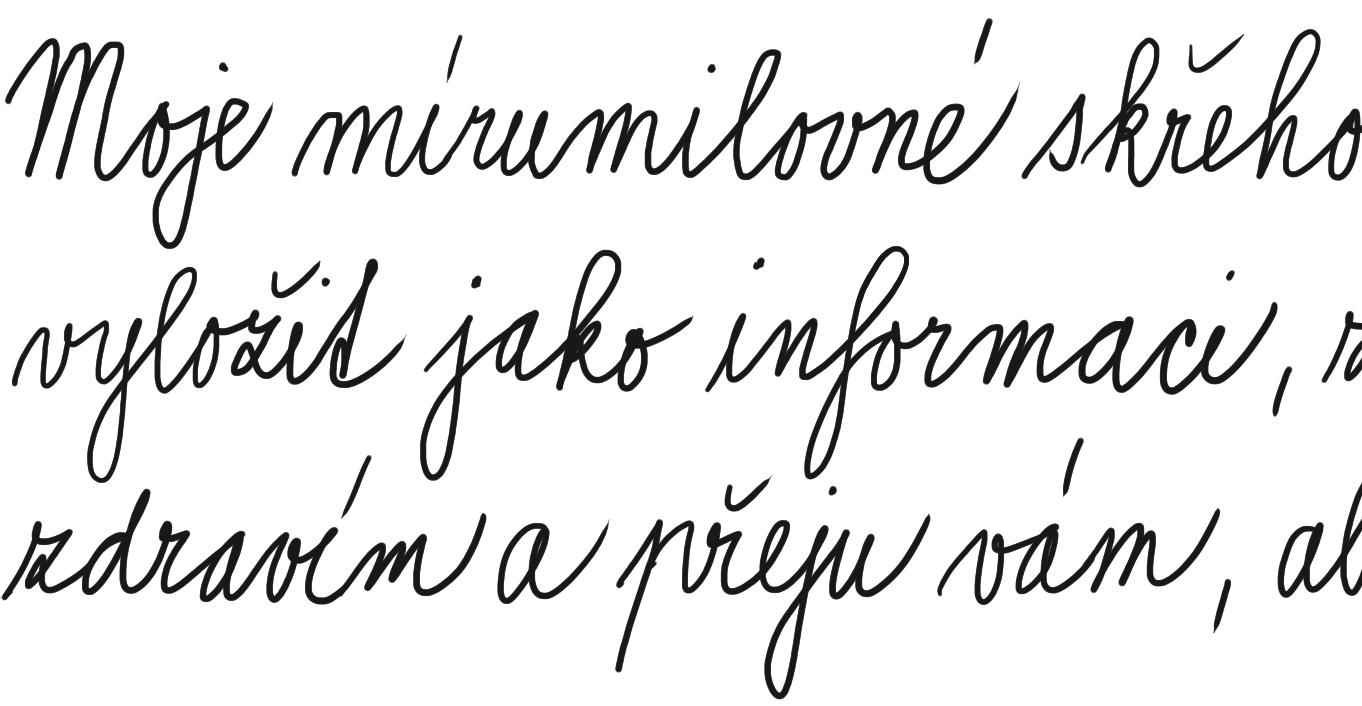 Moje mírumilovné skřeho
vyložit jako informaci, z
zdravím a přeju vám, ab